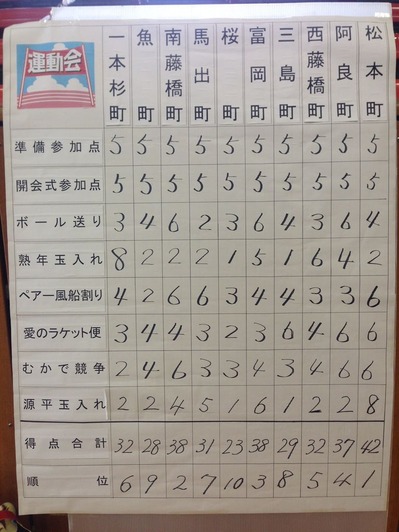 運動会
一本杉町 魚町 南藤橋町 馬出町 桜町 富岡町 三島町 西藤橋町 阿良町 松本町
準備参加点 5 5 5 5 5 5 5 5 5 5
開会式参加点 5 5 5 5 5 5 5 5 5 5
ボール送り 3 4 6 2 3 6 4 3 6 4
熟年玉入れ 8 2 2 2 1 5 1 6 4 2
ペアー風船割り 4 2 6 6 3 4 4 3 3 6
愛のラケット便 3 4 4 3 2 3 6 4 6 6
むかで競争 2 4 6 3 3 4 3 4 6 6
源平玉入れ 2 2 4 5 1 6 1 2 2 8
得点合計 32 28 38 31 23 38 29 32 37 42
順位 6 9 2 7 10 3 8 5 4 1